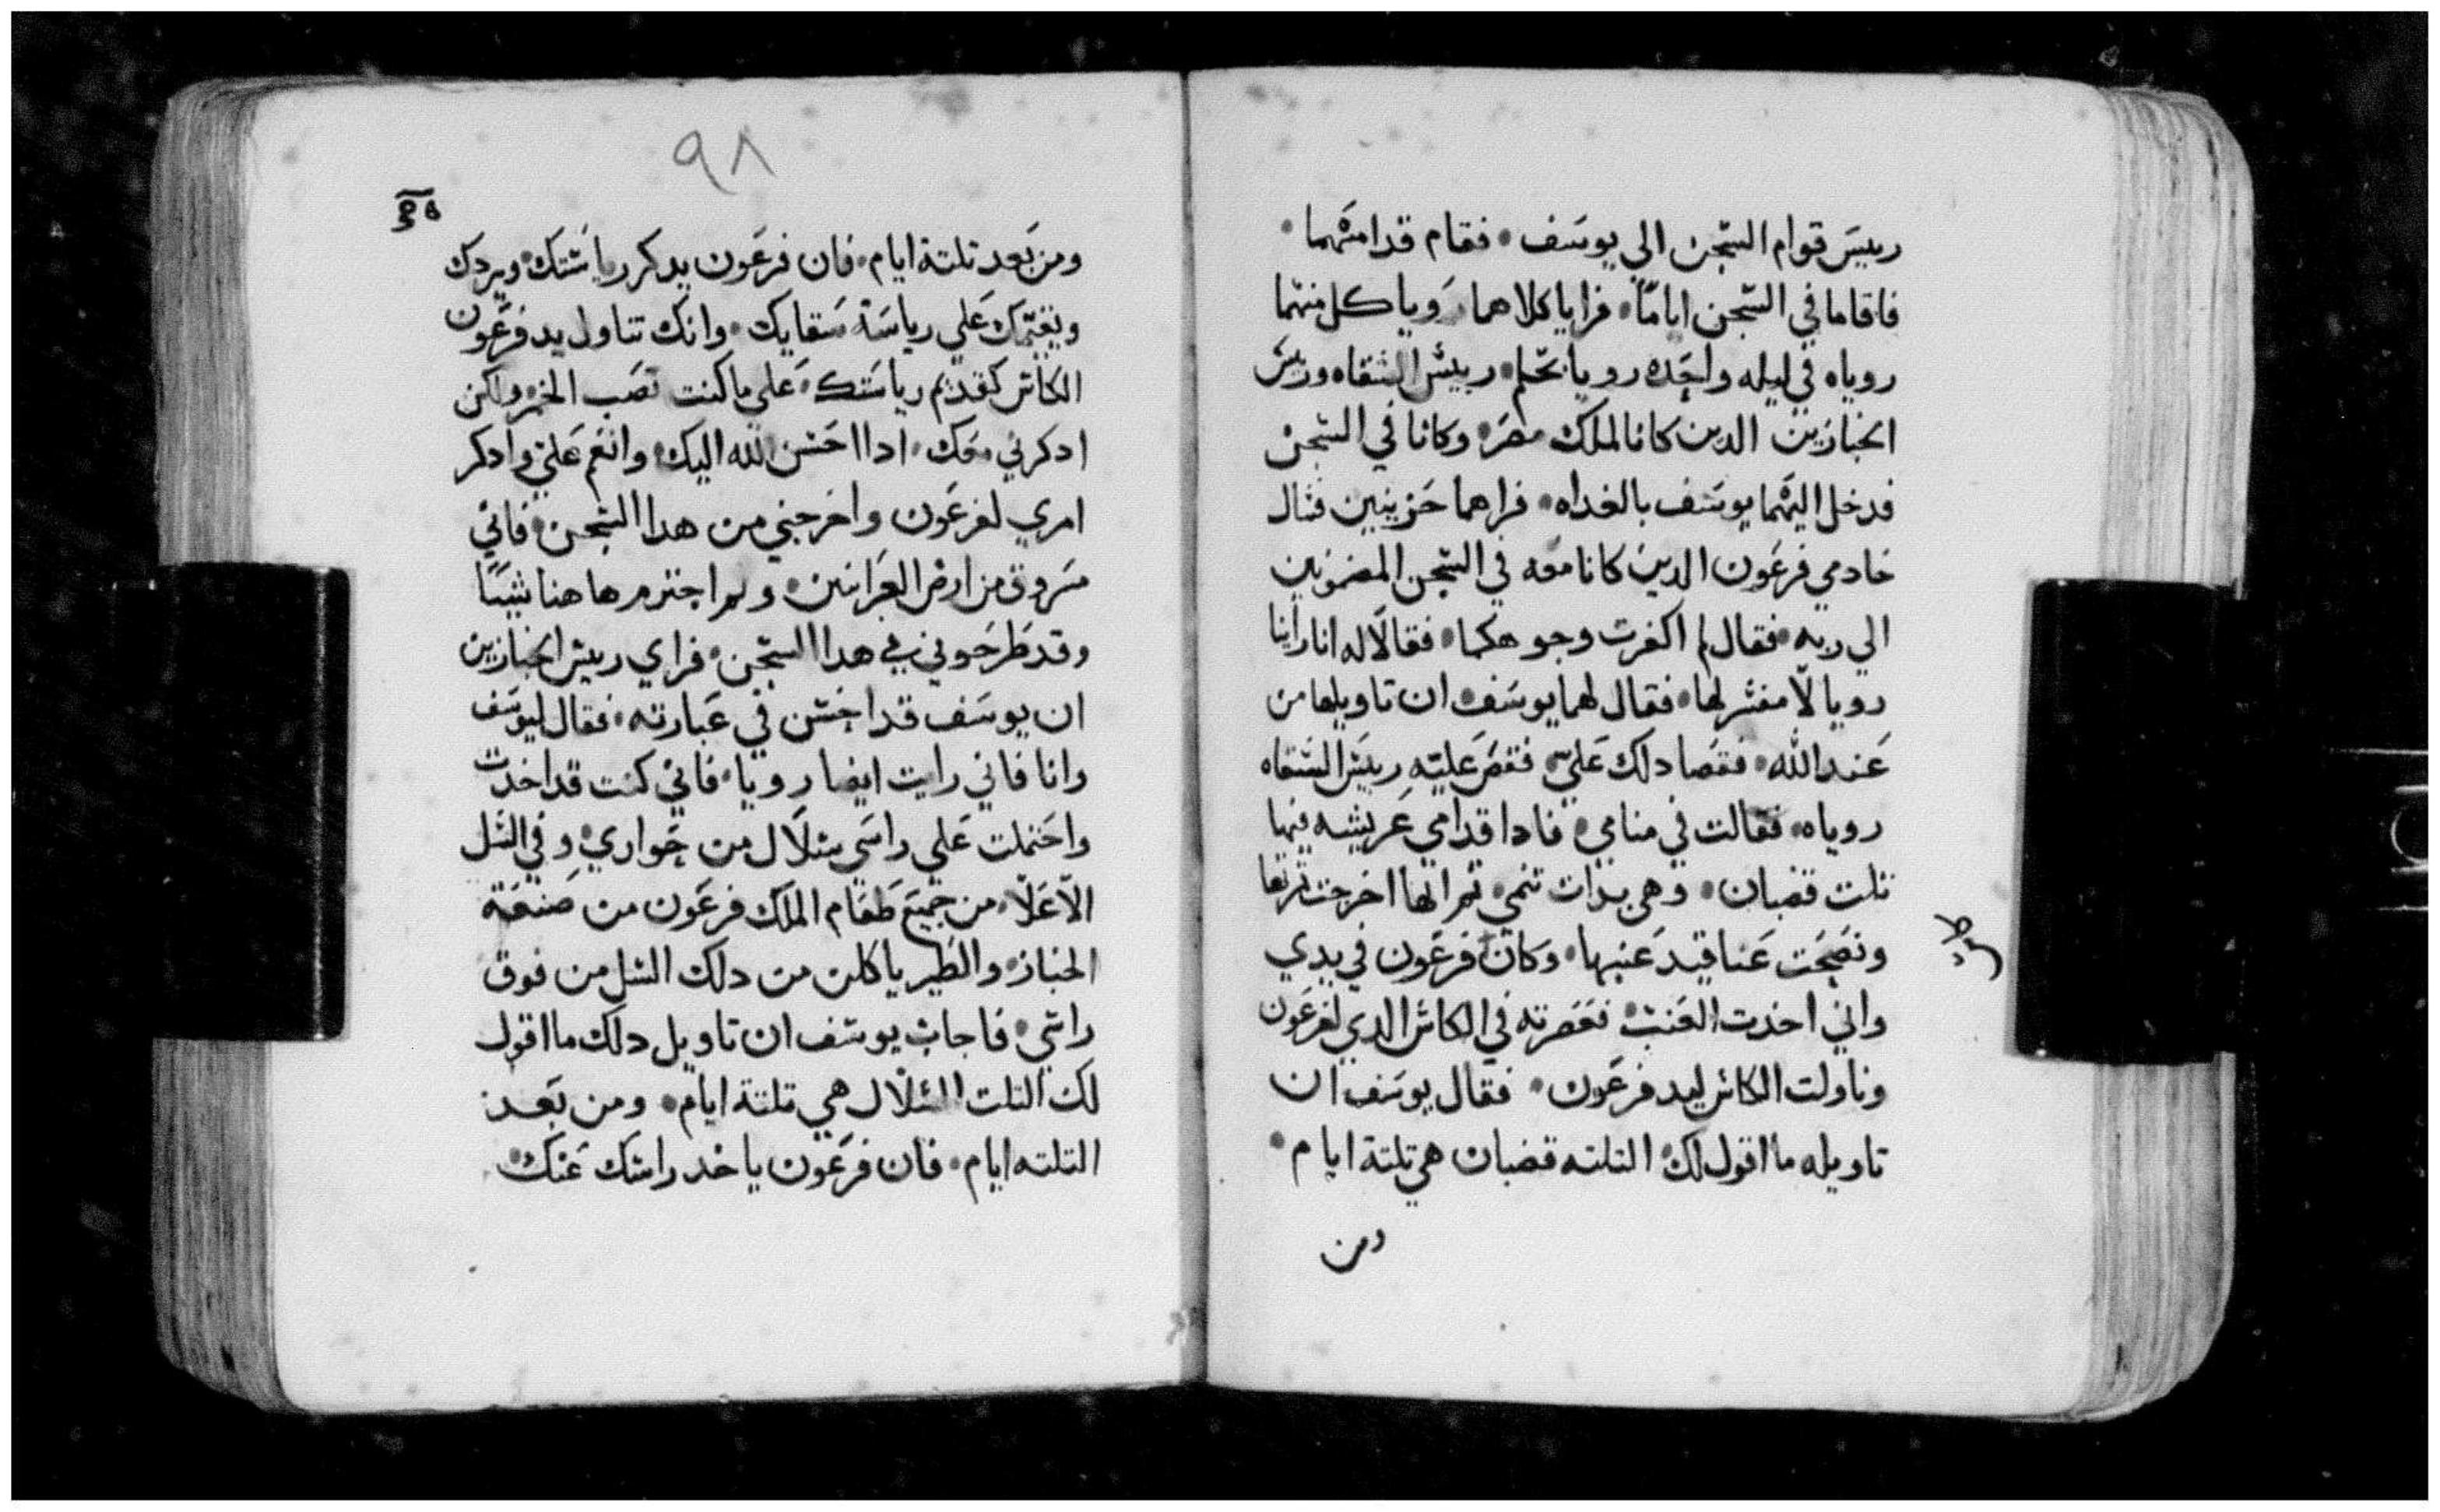 رييس قوام السجن الي يوسف • فقام قدامهما •
فاقاما في السجن اياما • فرايا كلاهما رويا كل منهما
روياه في ليله واحده رويا بحلم • رييس السقاه ورييس
الخبازين الدين كانا لملك مصر • وكانا في السجن
فدخل اليهما يوسف بالغداه • فراهما حزينين فسال
خادمي فرعون الدين كانا معه في السجن المضمونين
الي ربه • فقال لم اكفرت وجوهكما • فقالا له انا راينا
رويا لا مفسر لها • فقال لهما يوسف • ان تاويلها من
عند الله • فقصا دلك علي فقص عليه رييس السقاه
روياه • فقالت في منامي • فادا قدامي عريشه فيها
تلت قضبان • وهي بدات تنمي • تم انها اخرجت تمرتها
ونضجت عناقيد عنبها • وكان فرعون في يدي
واني اخدت العنب • فعصرته في الكاس الدي لفرعون
وناولت الكاس ليد فرعون • فقال يوسف ان
تاويله ما اقول لك • التلته قضبان هي تلتة ايام •
ومن
٩٨
ومن بعد تلتة ايام • فان فرعون يدكر رياستك • ويردك
ويقيمك علي رياسة سقايك • وانك تناول يد فرعون
الكاس كقديم رياستك • علي ما كنت تصب الخمر ولكن
ادكرني معك • ادا احسن الله اليك • وانعم علي وادكر
امري لفرعون واخرجني من هدا السجن • فاني
سروق من ارض العبرانيين • ولم اجترم هاهنا شيا
وقد طرحوني في هدا السجن • فراي رييس الخبازين
ان يوسف قد احسن في عبارته • فقال ليوسف
وانا فاني رايت ايضا رويا • فاني كنت قد اخدت
واحتملت علي راسي سلال من حواري • وفي السل
الاعلا • من جميع طعام الملك فرعون من صنعة
الخباز • والطير ياكلن من دلك السل من فوق
راسي • فاجاب يوسف ان تاويل دلك ما اقول
لك التلت السلال هي تلتة ايام • ومن بعد
التلته ايام • فان فرعون ياخد راسك عنك •